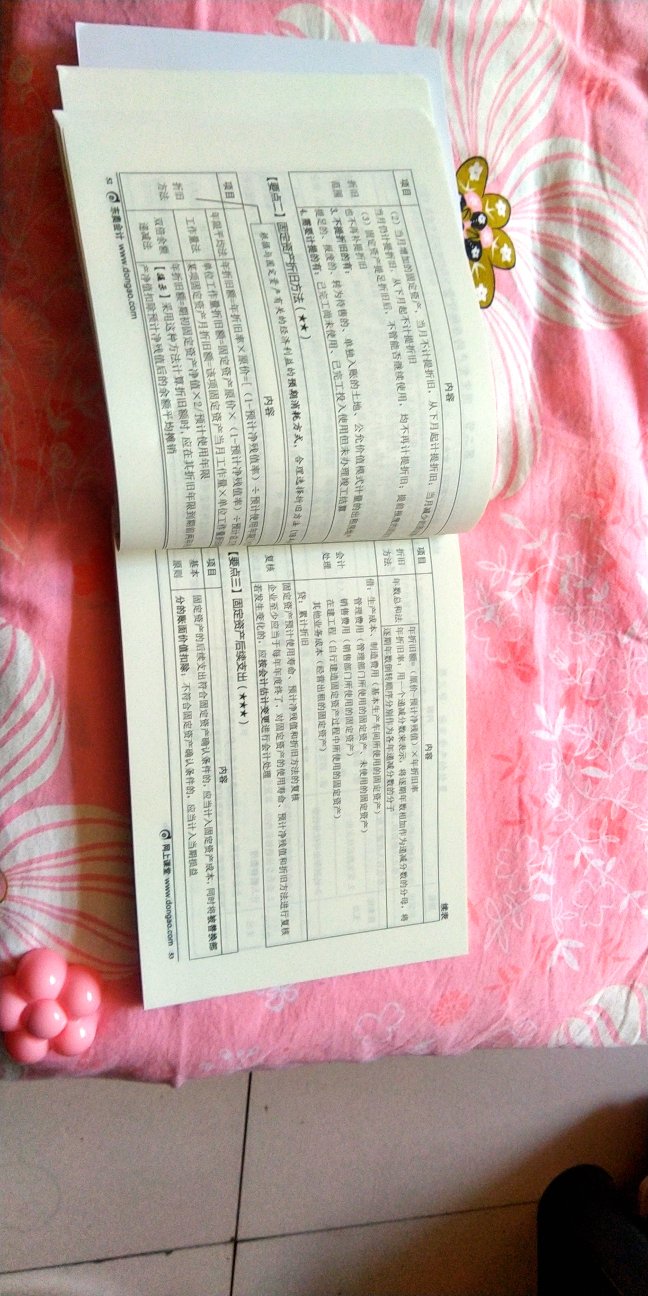 项目
内容
折旧
范围
（2）当月增加的固定资产，当月不计提折旧，从下月起计提折旧；当月减少的
当月仍计提折旧，从下月起不计提折旧
（3）固定资产提足折旧后，不管能否继续使用，均不再计提折旧；提前报废的
也不再补提折旧
3. 不提折旧的有：
提足的、报废的、转为待售的、单独入账的土地、公允价值模式计量的
4. 照提折旧的有：已完工尚未使用、已完工投入使用但未办理竣工结算
【要点二】固定资产折旧方法（★★）
根据与固定资产有关的经济利益的预期消耗方式，合理选择折旧方法
项目
内容
折旧
方法
年限平均法
年折旧额=年折旧率×原价=[（1-预计净残值率）÷预计使用
工作量法
单位工作量折旧额=固定资产原价×（1-预计净残值率）÷预计总
某项固定资产月折旧额=该项固定资产当月工作量×单位工作量
双倍余额
递减法
年折旧额=期初固定资产净值×2/预计使用年限
【提示】采用这种方法计算折旧额时，应在其折旧年限到期前两
产净值扣除预计净残值后的余额平均摊销
52 东奥会计 www.dongao.com
续表
项目
内容
折旧
方法
年数总和法
年折旧额=（原价-预计净残值）×年折旧率
年折旧率，用一个递减分数来表示，将逐期年数相加作为递减分数的分母，将
逐期年数倒转顺序分别作为各年递减分数的分子
会计
处理
借：生产成本、制造费用（基本生产车间所使用的固定资产）
管理费用（管理部门所使用的固定资产、未使用的固定资产）
销售费用（销售部门所使用的固定资产）
在建工程（自行建造固定资产过程中所使用的固定资产）
其他业务成本（经营出租的固定资产）
贷：累计折旧
复核
固定资产预计使用寿命、预计净残值和折旧方法的复核
企业至少应当于每年年度终了，对固定资产的使用寿命、预计净残值和折旧方法进行复核
若发生变化的，应按会计估计变更进行会计处理
【要点三】固定资产后续支出（★★★）
项目
内容
基本
原则
固定资产的后续支出符合固定资产确认条件的，应当计入固定资产成本，同时将被替换部
分的账面价值扣除；不符合固定资产确认条件的，应当计入当期损益
网上课堂 www.dongao.com 53